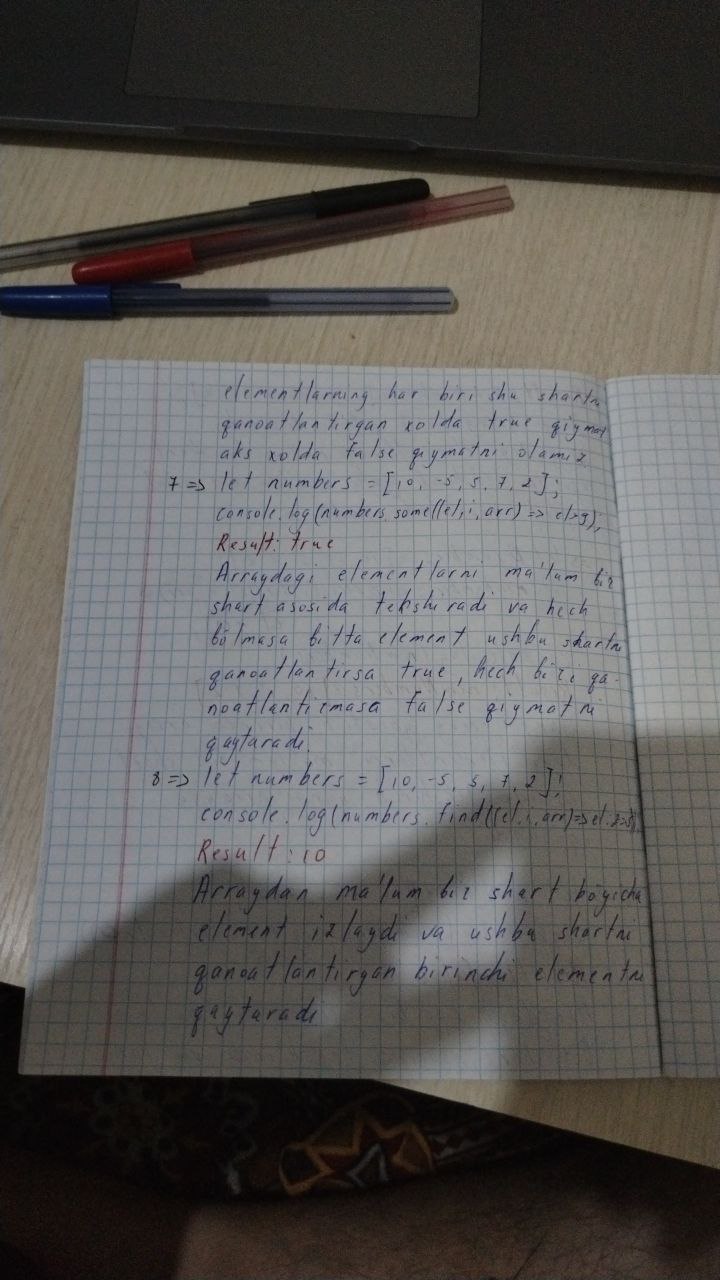 elementlarning har biri shu shartni
qanoatlantirgan xolda true qiymat
aks xolda false qiymatni olamiz
7 => let numbers = [10, -5, 5, 7, 2];
console.log(numbers.some((el, i, arr) => el>9);
Result: true
Arraydagi elementlarni ma'lum bir
shart asosida tekshiradi va hech
bòlmasa bitta element ushbu shartni
qanoatlantirsa true, hech biri qa-
noatlantirmasa false qiymatni
qaytaradi.
8 => let numbers = [10, -5, 5, 7, 2];
console.log(numbers.find((el, i, arr)=>
Result: 10
Arraydan ma'lum bir shart bòyicha
element izlaydi va ushbu shartni
qanoatlantirgan birinchi elementni
qaytaradi